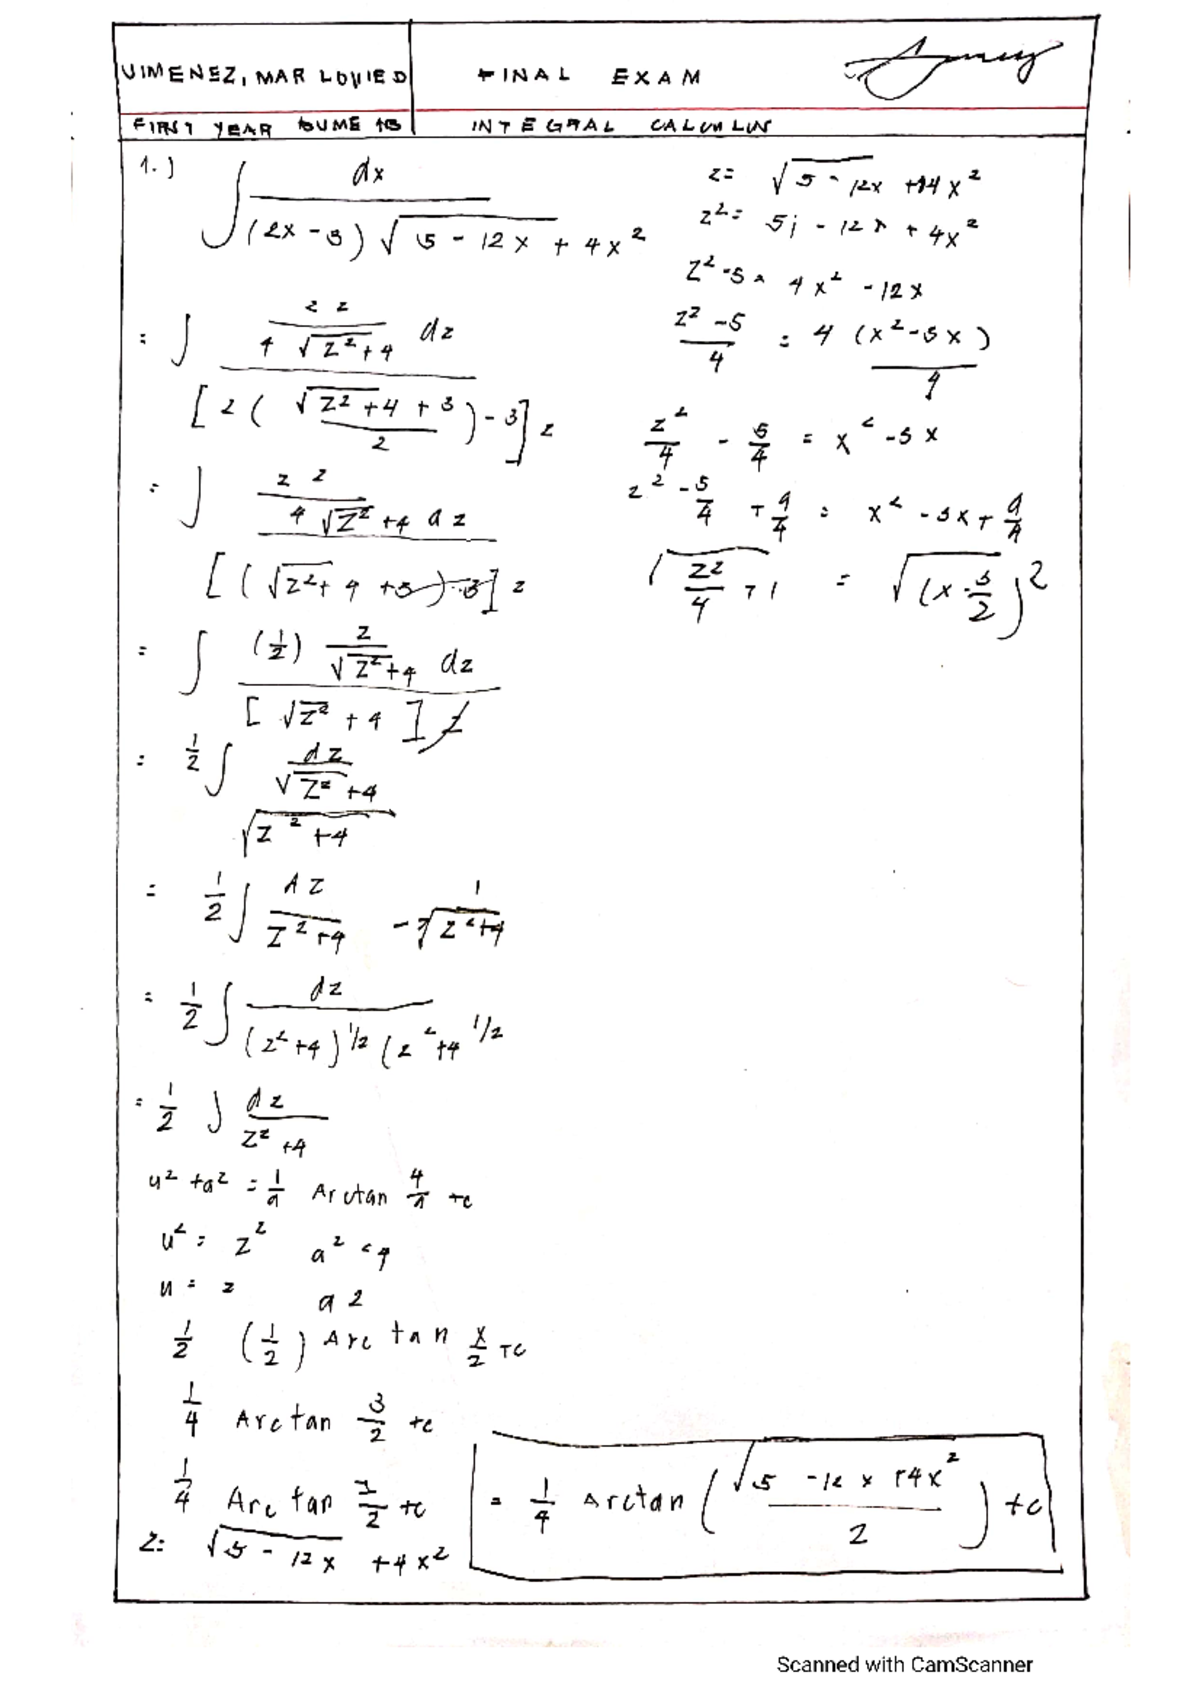 JIMENEZ, MAR LOVIE D FINAL EXAM
FIRST YEAR INTEGRAL CALCULUS
1.) ∫ dx / (2x - 3) √5 - 12x + 4x²
z = √5 - 12x + 4x²
z² = 5 - 12x + 4x²
z² - 5 = 4x² - 12x
z² - 5 / 4 = 4 (x² - 3x) / 4
z²/4 - 5/4 = x² - 3x
z² - 5/4 + 9/4 = x² - 3x + 9/4
√z²/4 + 1 = √(x - 3/2)²
= ∫ z z / 4 √z² + 4 dz / [2 ( √z² + 4 + 3 / 2 ) - 3] z
= ∫ z z / 4 √z² + 4 dz / [( √z² + 4 + 3 ) - 3] z
= ∫ (1/2) z / √z² + 4 dz / [ √z² + 4 ] z
= 1/2 ∫ dz / √z² + 4
√z² + 4
= 1/2 ∫ dz / z² + 4 - 1 / √z² + 4
= 1/2 ∫ dz / (z² + 4)^1/2 (z² + 4 ^1/2
= 1/2 ∫ dz / z² + 4
u² + a² = 1/a Arctan 4/a + c
u² = z² a² = 4
u = z a 2
1/2 (1/2) Arc tan x/2 + c
1/4 Arctan 3/2 + c
1/4 Arc tan z/2 + c
z: √5 - 12x + 4x²
= 1/4 Arctan ( √5 - 12x + 4x² / 2 ) + c
Scanned with CamScanner